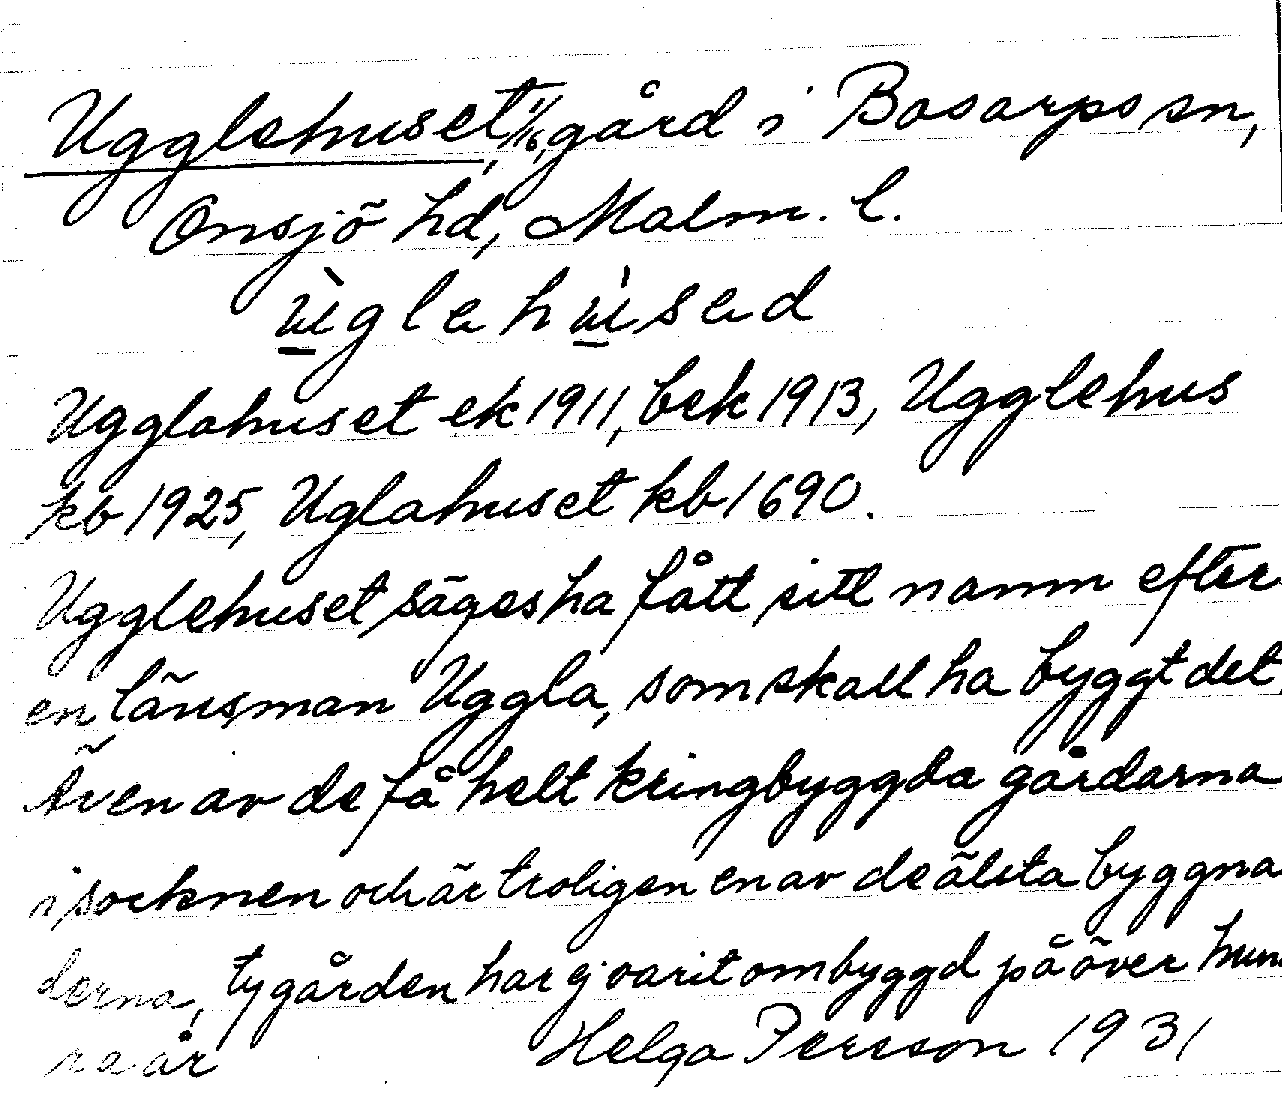 Ugglehuset, 1/16, gård i Bosarps sn,
Onsjö hd, Malm. l.
ù̲glehu̲̍sed
Ugglahuset ek 1911, bek 1913, Ugglehus
kb 1925, Uglahuset kb 1690.
Ugglehuset säges ha fått sitt namn efter
en länsman Uggla, som skall ha byggt det
Är en av de få helt kringbyggda gårdarna
i socknen och är troligen en av de älsta byggna
derna, ty gården har ej varit ombyggd på över hun
ra år
Helga Persson 1931